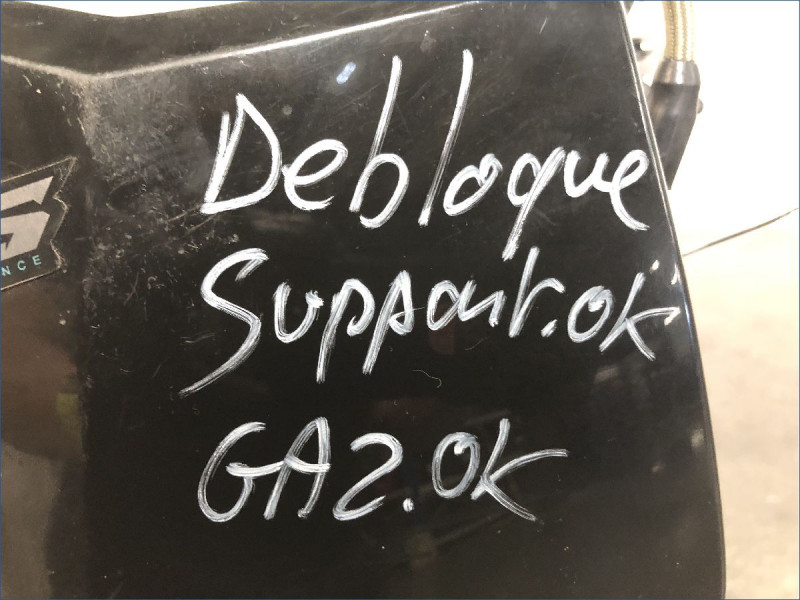 Debloque
Support.ok
GAZ.OK
S
NCE